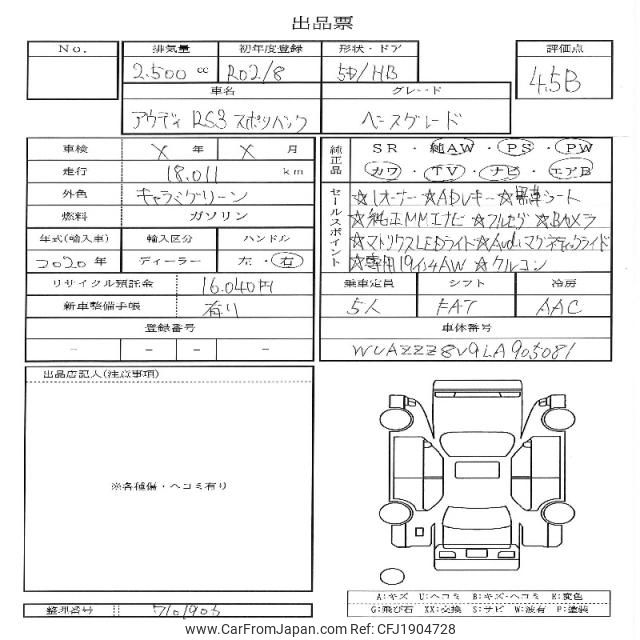 出品票
No.
排気量
初年度登録
形状・ドア
評価点
2.500 cc
R02/8
5D/HB
4.5B
車名
グレード
アウディ RS3 スポーツバック
ベースグレード
車検
X 年 X 月
走行
18.011 km
外色
キャラミグリーン
燃料
ガソリン
年式(輸入車)
輸入区分
ハンドル
2020年
ディーラー
左・右
リサイクル預託金
16.040円
新車整備手帳
有り
登録番号
- - - -
純正品
SR・純AW・PS・PW
カワ・TV・ナビ・エアB
セールスポイント
☆1オーナー☆ADVキー☆黒革シート
☆純正MMエナビ☆フルセグ☆BAXラ
☆マトリクスLEDライト☆Audiマグネティックライド
☆専用19インチAW☆クルコン
乗車定員
シフト
冷房
5人
FAT
AAC
車体番号
WUAZZZ8V9LA905081
出品店記入(注意事項)
※各種傷・ヘコミ有り
整理番号
7101903
A:キズ U:ヘコミ B:キズ・ヘコミ E:変色
G:飛び石 XX:交換 S:サビ W:波有 P:塗装
www.CarFromJapan.com #CFJ1904728